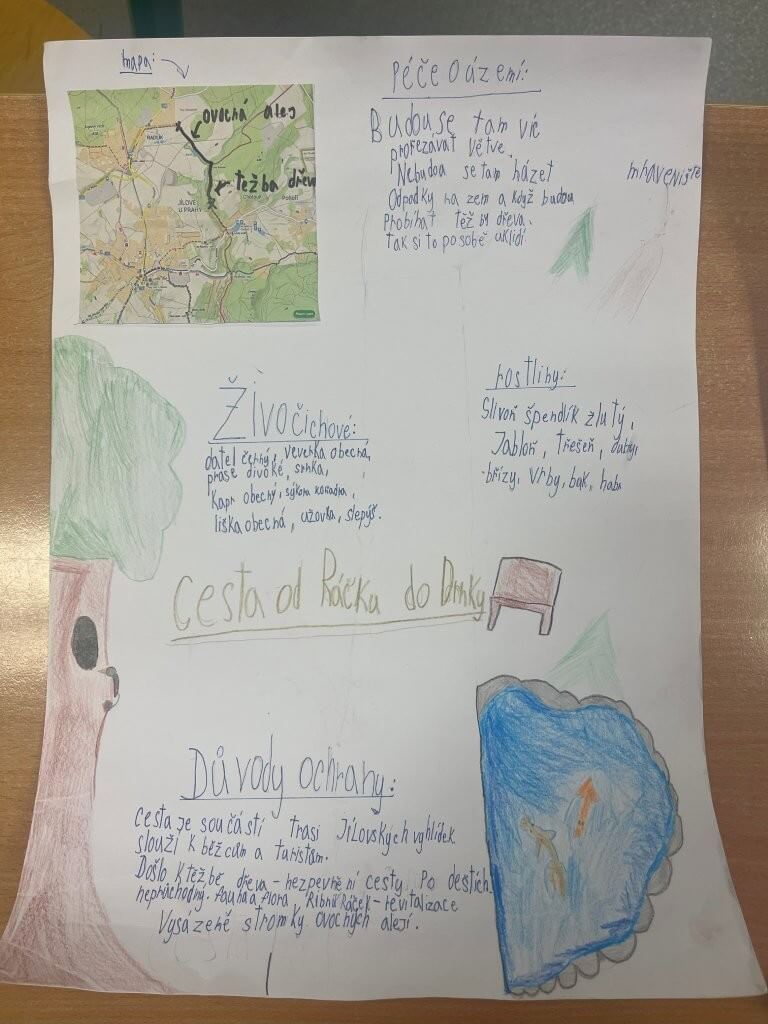 mapa:
ovochá alej
těžba dřev
RADLÍK
JÍLOVÉ
U PRAHY
Péče o ázemí:
Budou se tam víc
prořezávat větve.
Nebudou se tam házet
Odpadky na zem a když budou
Probíhat těžba dřeva.
tak si to po sobě uklidí
mraveniště
Živočichové:
datel černý, veverka obecná,
prase divoké, srnka,
Kapr obecný, sýkora koňadra,
liška obecná, užovka, slepýš.
rostliny:
Slivoň špendlík žlutý,
Jabloň, třešeň, duby,
břízy, Vrby, buk, habr
Cesta od Ráčku do Drnky
Důvody ochrany:
Cesta je součástí trasi Jílovských vyhlídek
slouží k běžcům a turistům.
Došlo k těžbě dřeva - nezpevnění cesty Po deštích
neprůchodný. fauna a flora, Ribník Ráček - revitalizace
Vysázeně stromky ovocných alejí.